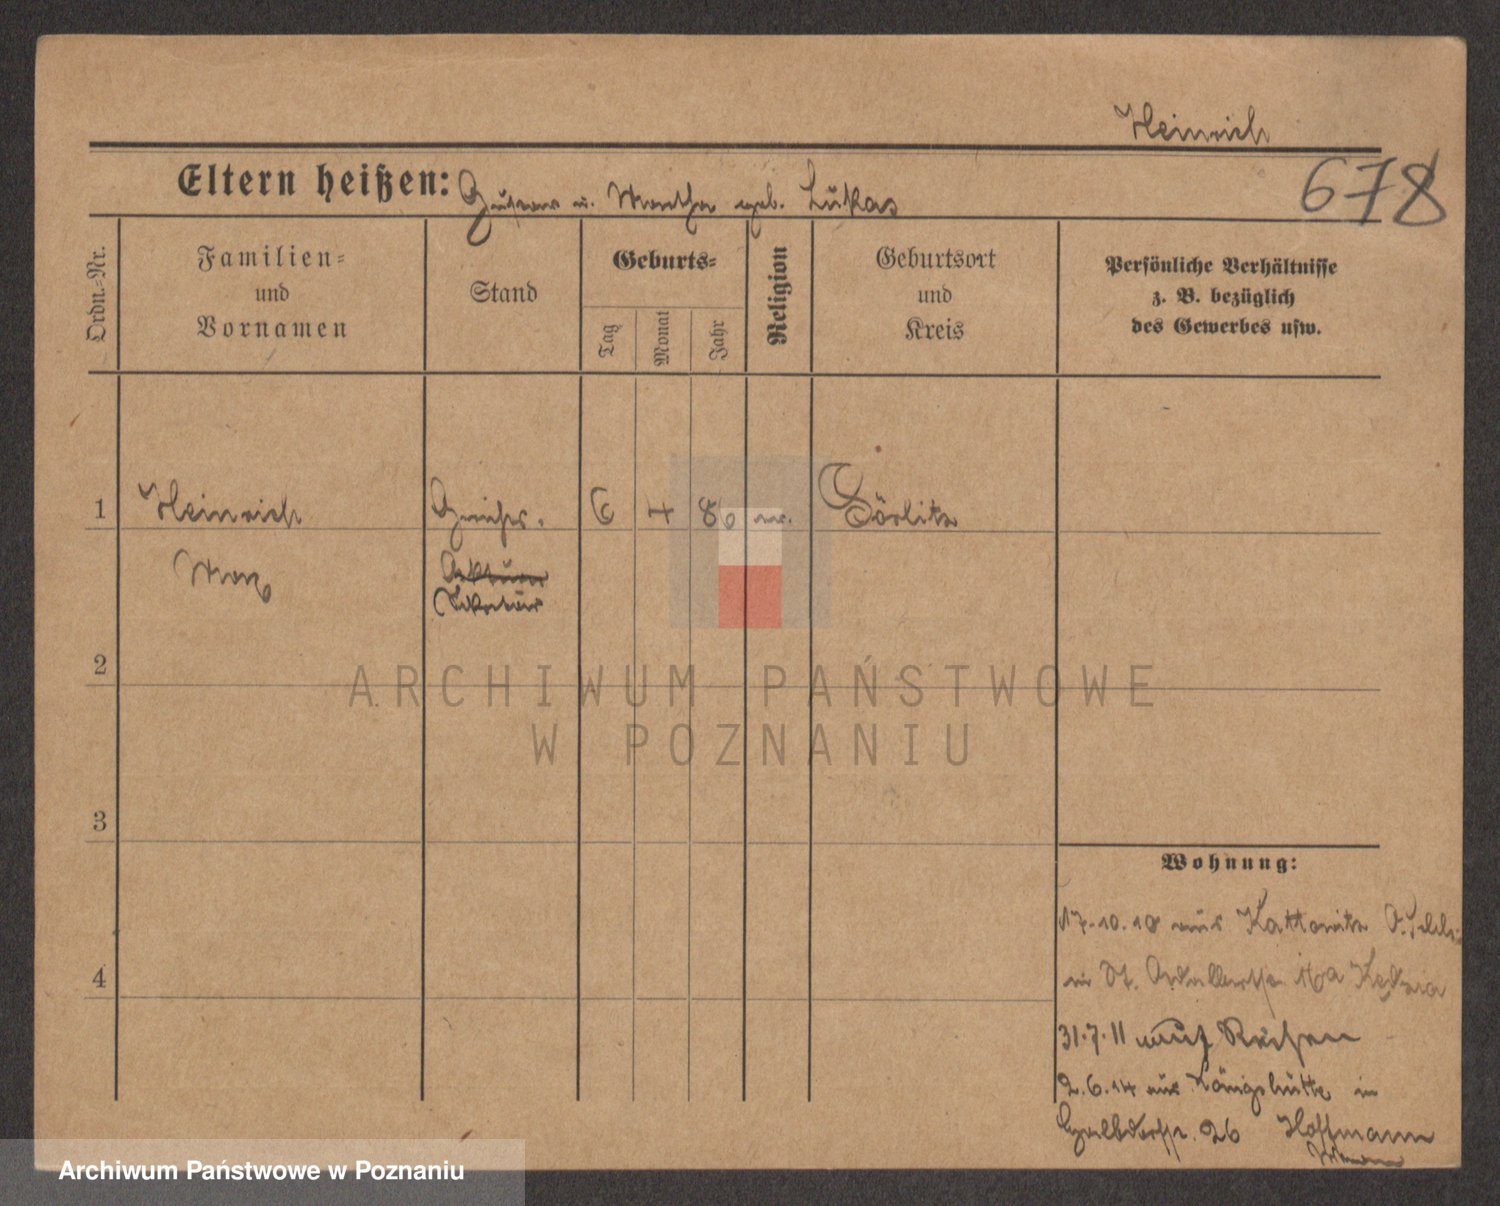 Heinrich
678
Eltern heißen: Gustav u. Martha geb. Lukas
Ordn.-Nr.
Familien- und Vornamen
Stand
Geburts-
Tag
Monat
Jahr
Religion
Geburtsort und Kreis
Persönliche Verhältnisse z. B. bezüglich des Gewerbes usw.
1 Heinrich Gerichts- 6 4 86 ev. Görlitz
Max Aktuar
Sekretär
2
3
4
Wohnung:
17.10.10 aus Kattowitz O. Schles.
in St. Adalbertstr. 16a Kędzia
31.7.11 auf Reisen
2.6.14 aus Königshütte in
26 Hoffmann
ARCHIWUM PAŃSTWOWE
W POZNANIU
Archiwum Państwowe w Poznaniu